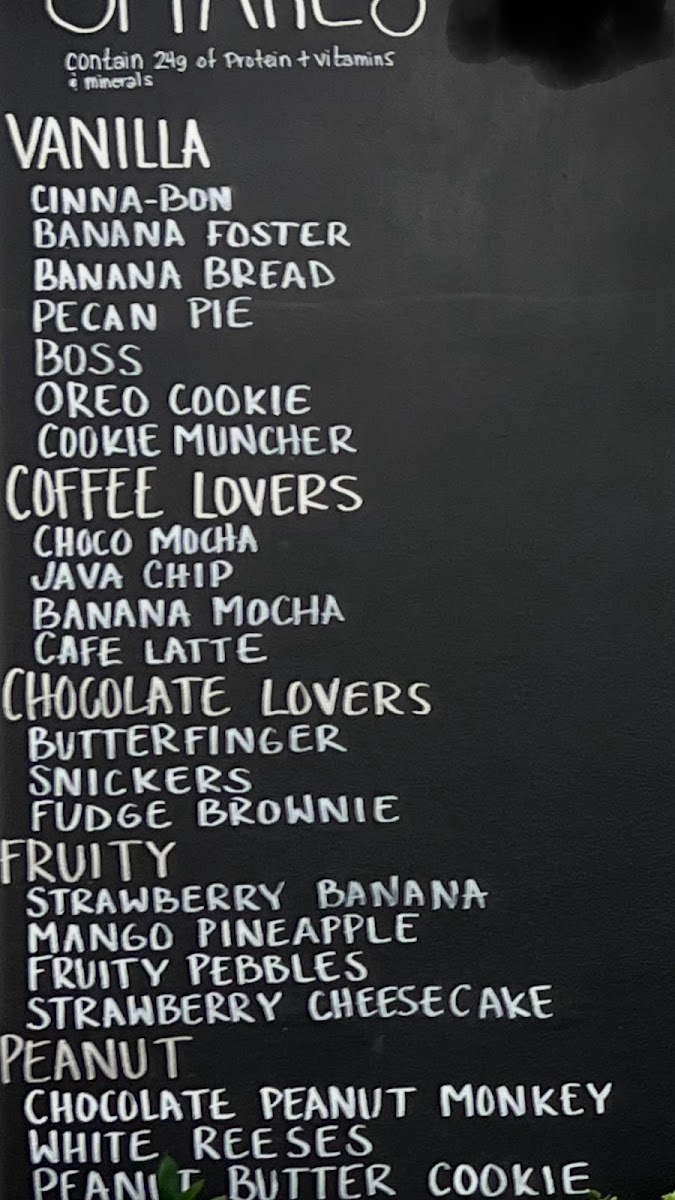 SHAKES
contain 24g of Protein + vitamins
& minerals
VANILLA
CINNA-BON
BANANA FOSTER
BANANA BREAD
PECAN PIE
BOSS
OREO COOKIE
COOKIE MUNCHER
COFFEE LOVERS
CHOCO MOCHA
JAVA CHIP
BANANA MOCHA
CAFE LATTE
CHOCOLATE LOVERS
BUTTERFINGER
SNICKERS
FUDGE BROWNIE
FRUITY
STRAWBERRY BANANA
MANGO PINEAPPLE
FRUITY PEBBLES
STRAWBERRY CHEESECAKE
PEANUT
CHOCOLATE PEANUT MONKEY
WHITE REESES
PEANUT BUTTER COOKIE